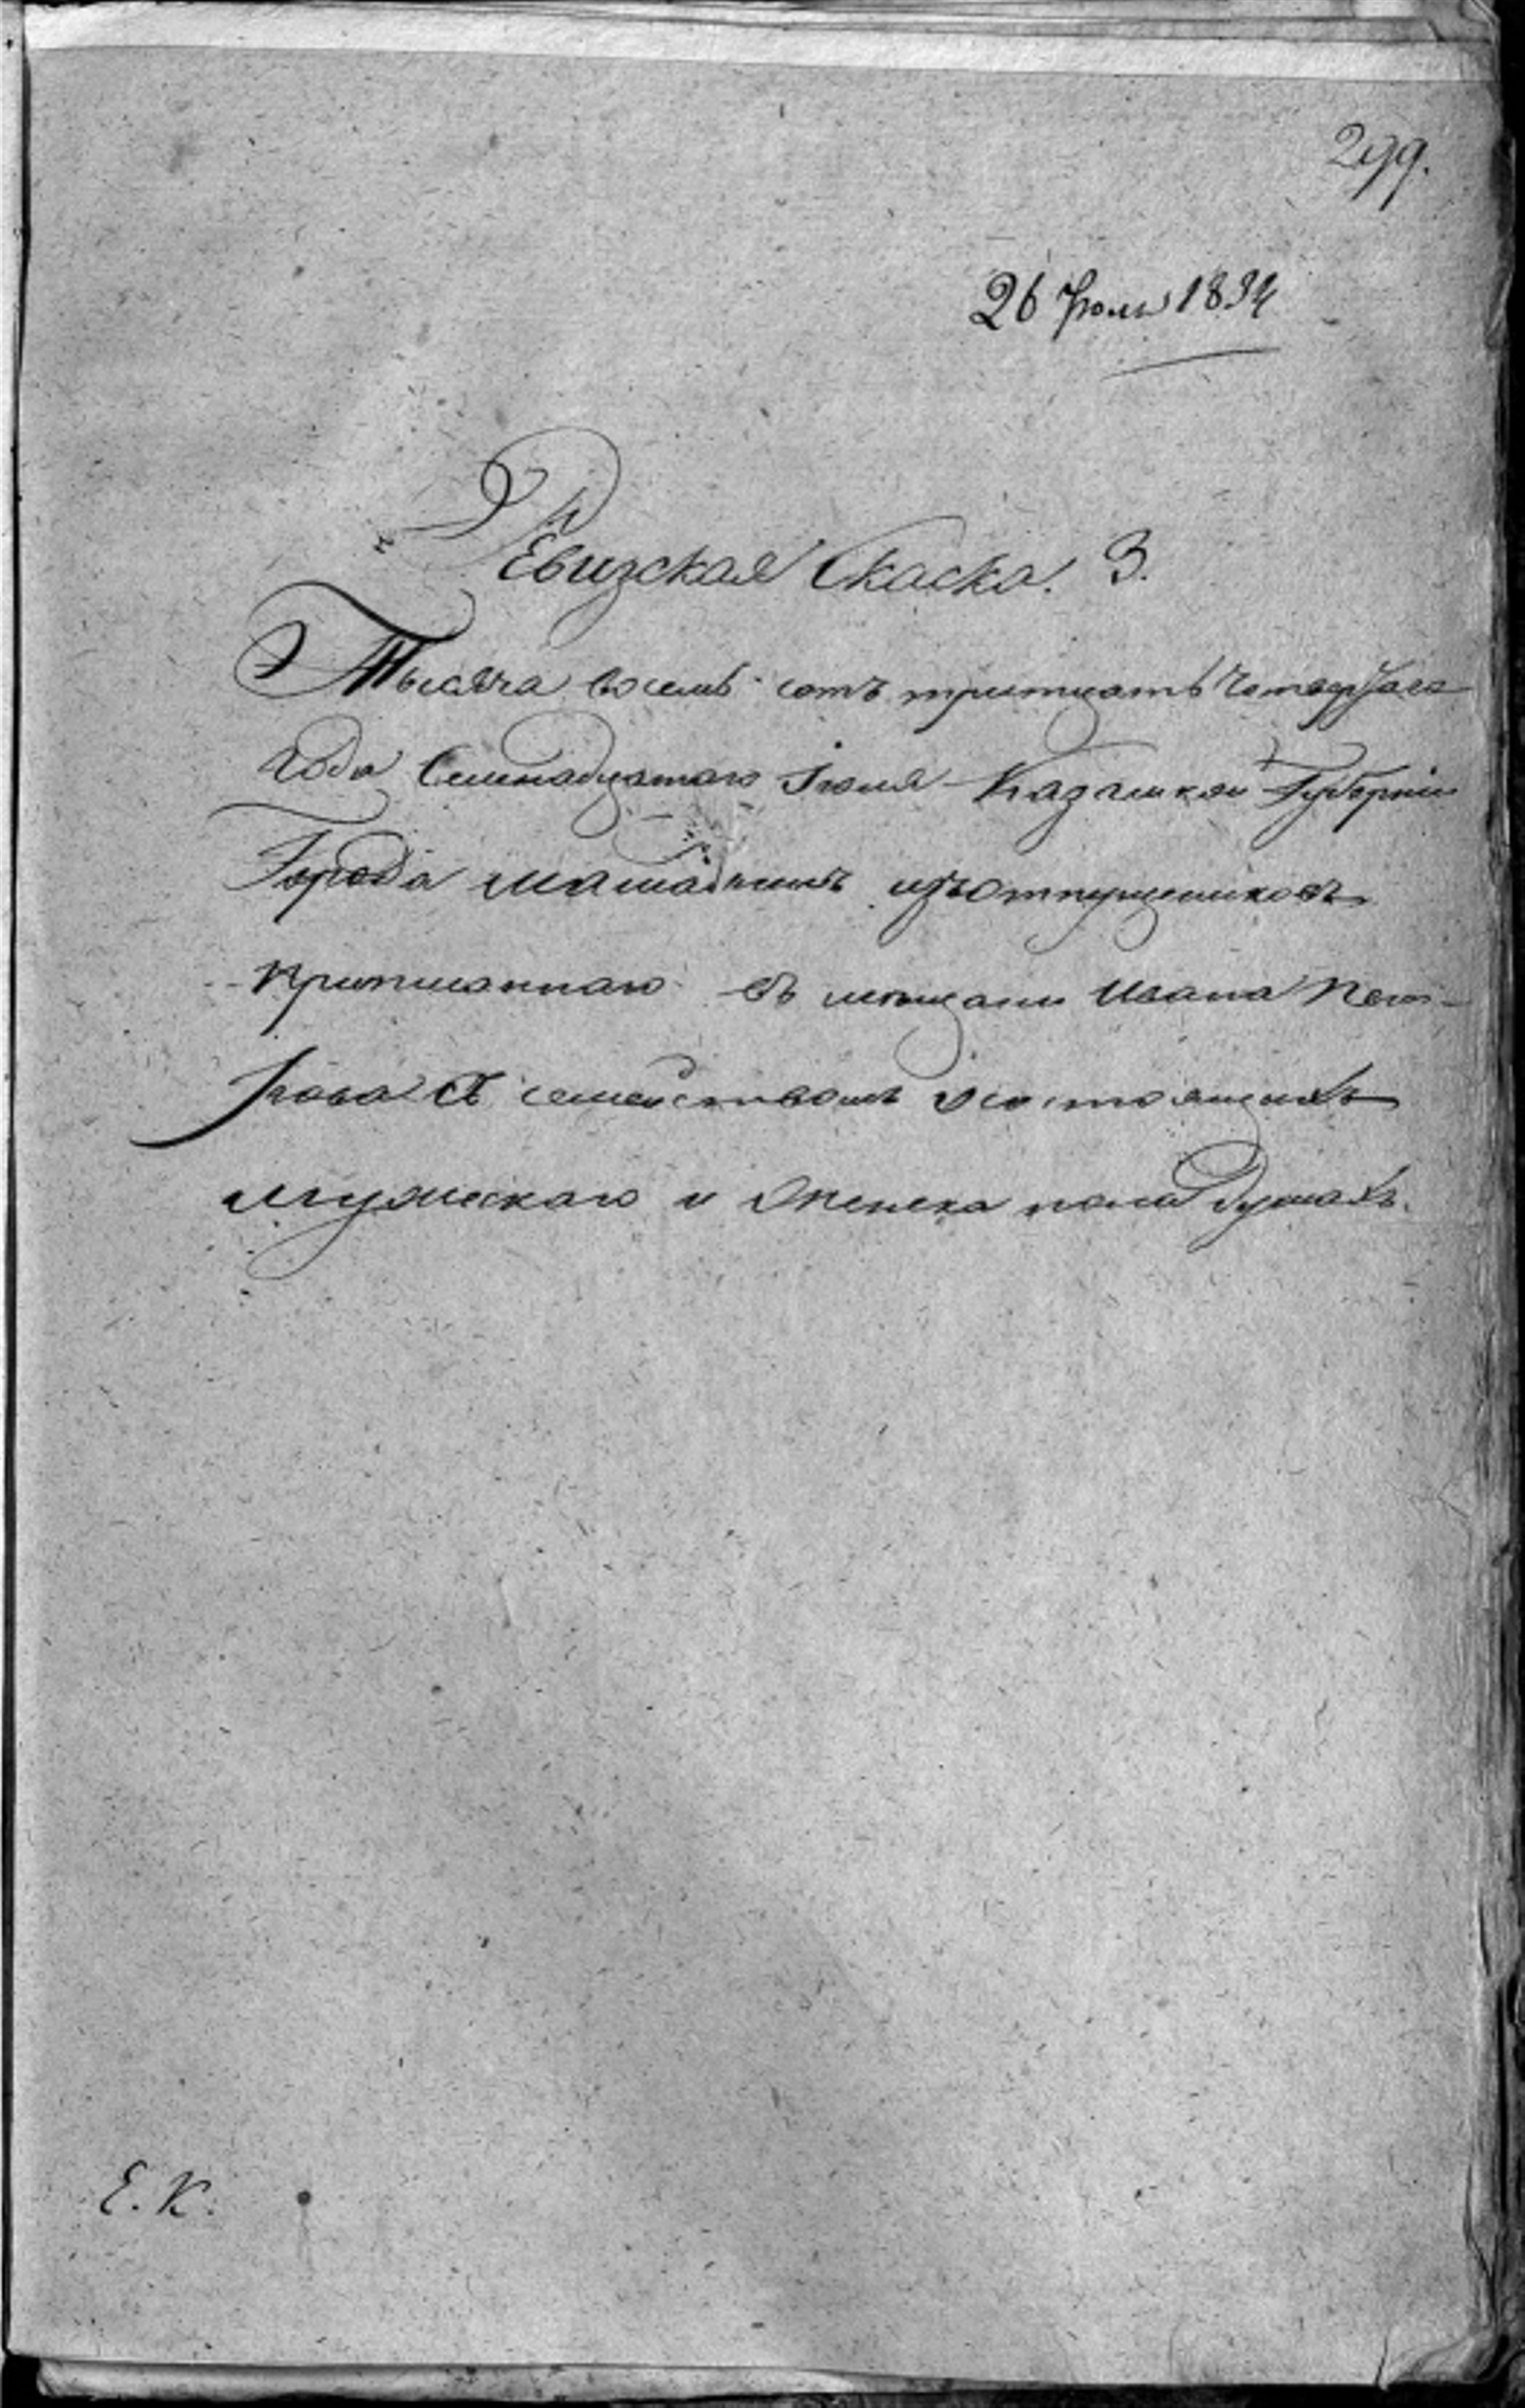 299.
26 Июля 1834
Ревизская Скаска. 3.
Тысяча восемь сотъ тритцать Четвертаго
Года Семнадцатого Іюля Казанской Губерніи
Города изъ отпущениковъ
приписаннаго въ мещани Ивана Пет-
рова съ семействомъ состоящихъ
мужескаго и женска пола душахъ.
Е. К.